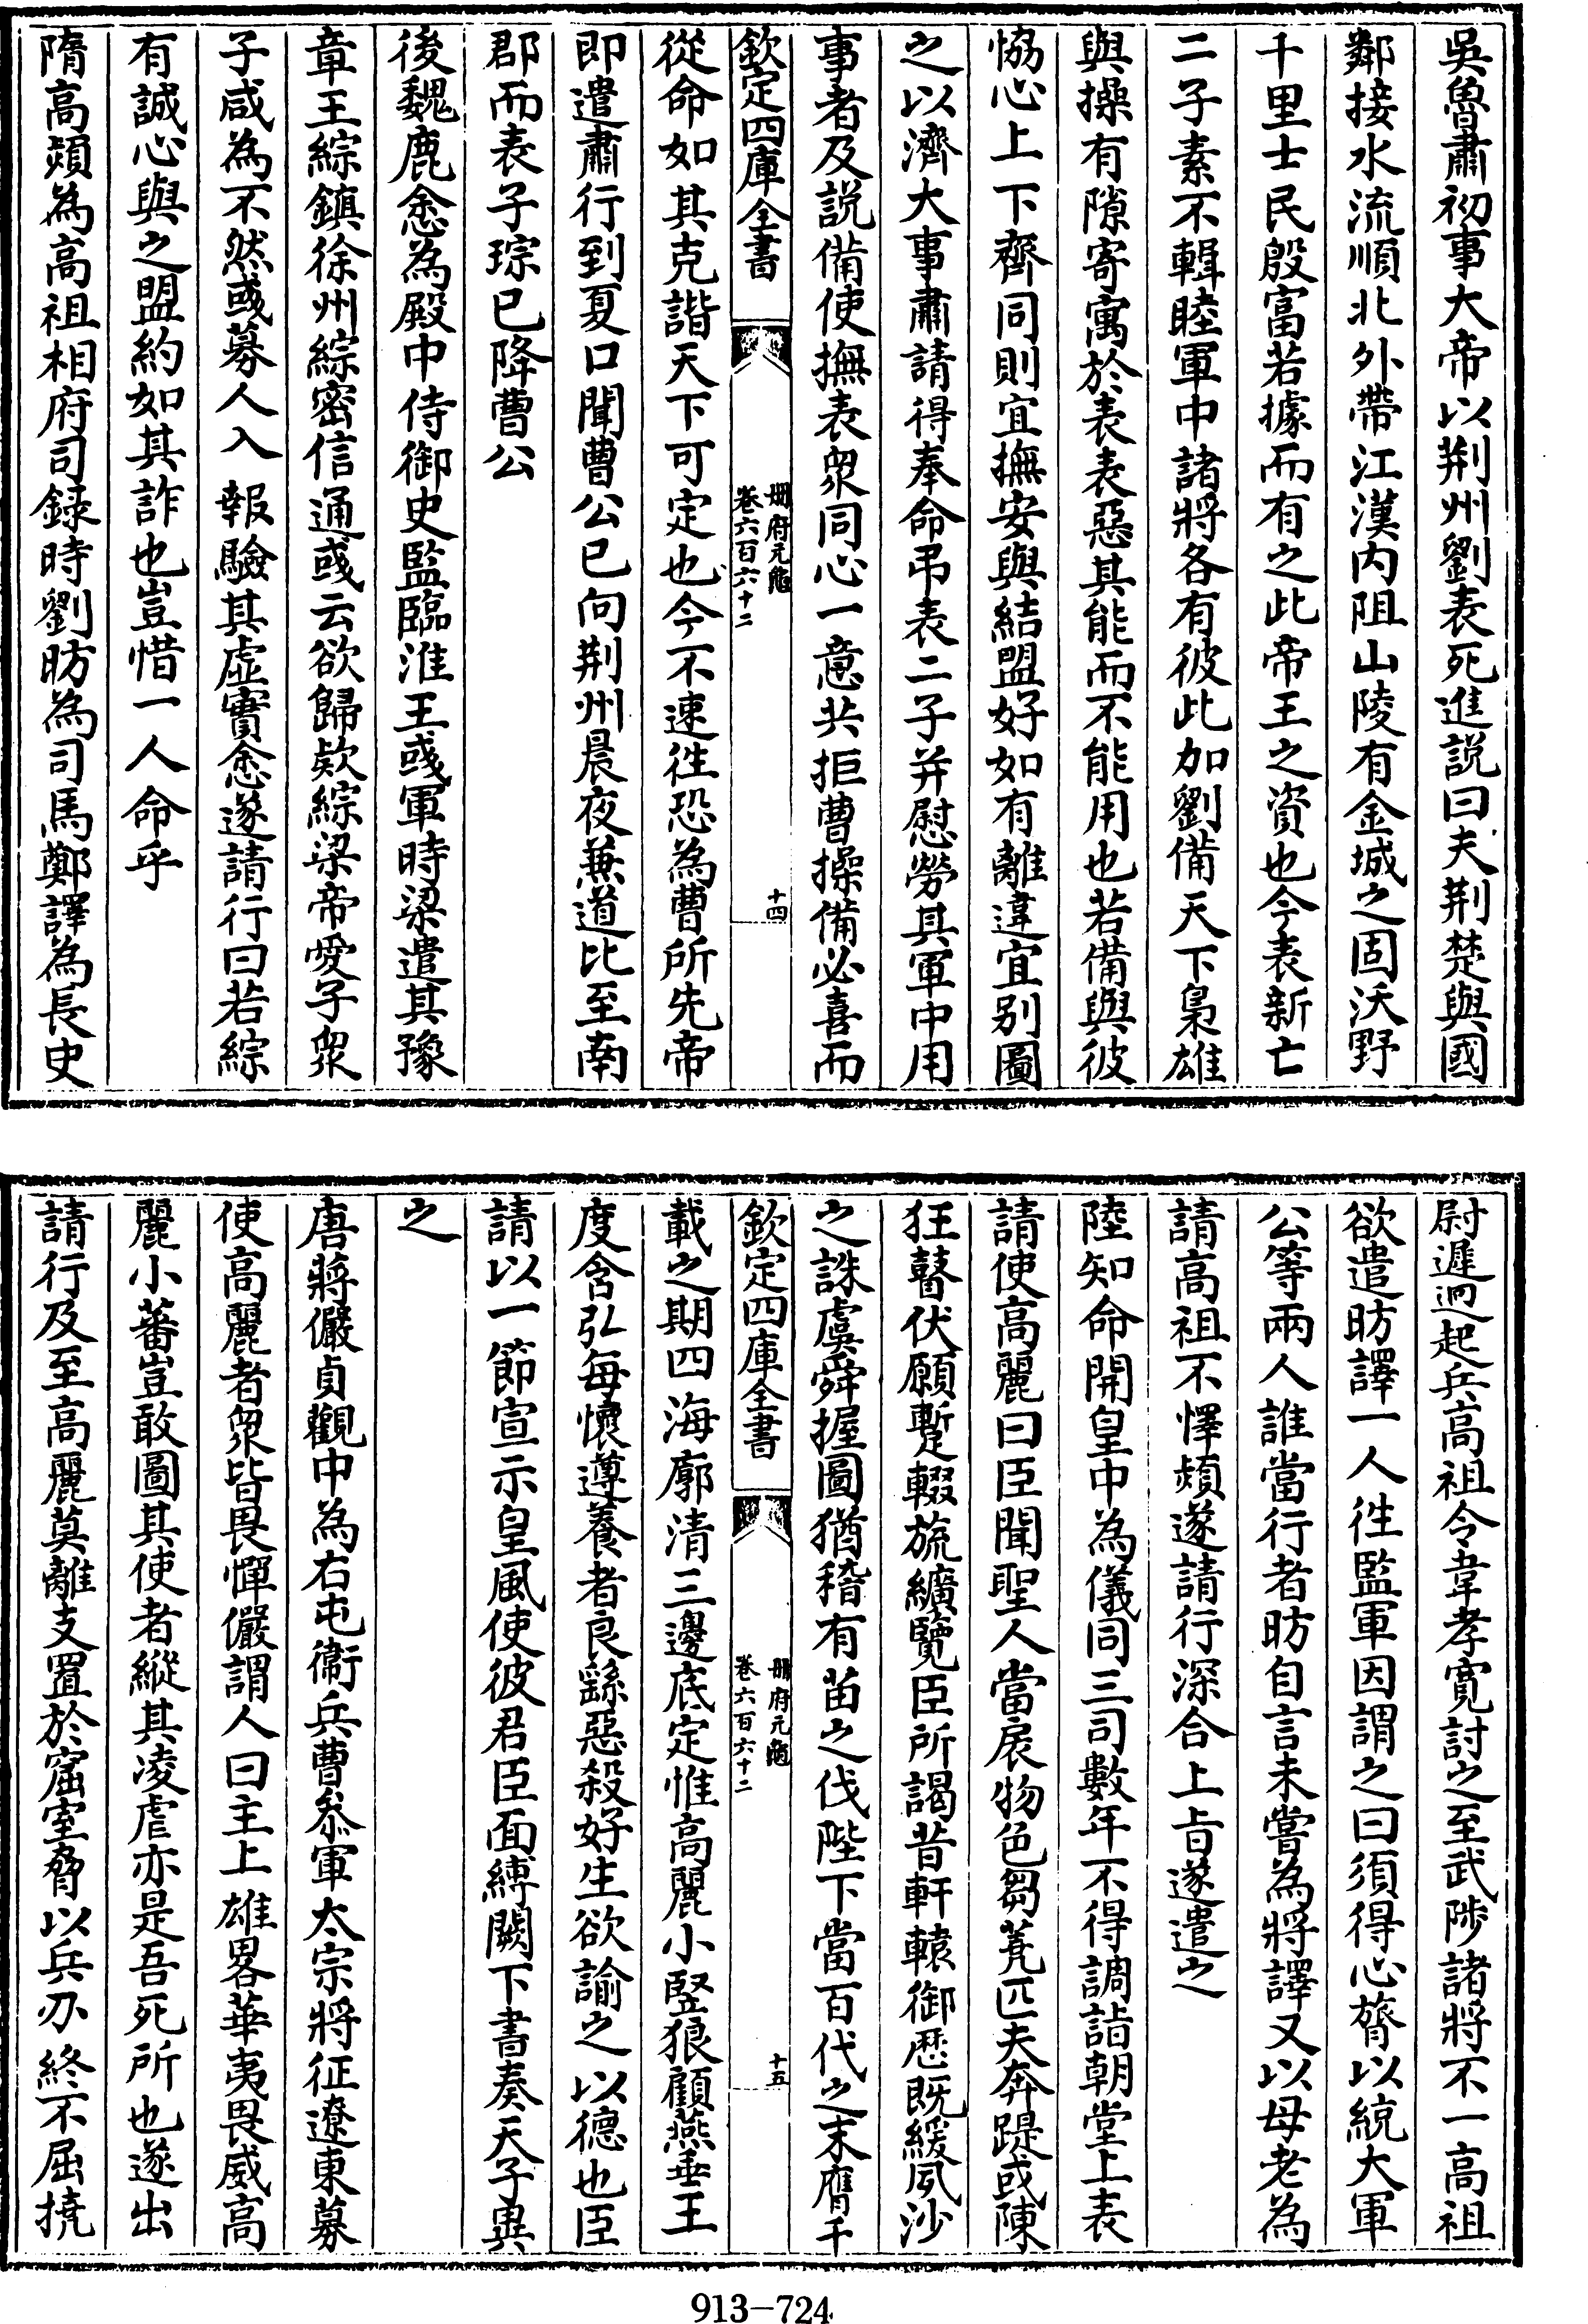 吳魯肅初事大帝以荆州劉表死進説曰夫荆楚與國
鄰接水流順北外帶江漢内阻山陵有金城之固沃野
千里士民殷富若據而有之此帝王之資也今表新亡
二子素不輯睦軍中諸將各有彼此加劉備天下梟雄
與操有隙寄寓於表表惡其能而不能用也若備與彼
恊心上下齊同則宜撫安與結盟好如有離違宜别圖
之以濟大事肅請得奉命弔表二子并慰勞其軍中用
事者及説備使撫表衆同心一意共拒曹操備必喜而
欽定四庫全書
册府元龜
卷六百六十二
十四
從命如其克諧天下可定也今不速徃恐為曹所先帝
即遣肅行到夏口聞曹公已向荆州晨夜兼道比至南
郡而表子琮已降曹公
後魏鹿悆為殿中侍御史監臨淮王彧軍時梁遣其豫
章王綜鎮徐州綜密信通彧云欲歸欵綜梁帝愛子衆
子咸為不然彧募人入報驗其虛實悆遂請行曰若綜
有誠心與之盟約如其詐也豈惜一人命乎
隋高熲為高祖相府司録時劉昉為司馬鄭譯為長史
尉遲迥起兵高祖令韋孝寛討之至武陟諸將不一高祖
欲遣昉譯一人徃監軍因謂之曰須得心膂以統大軍
公等兩人誰當行者昉自言未嘗為將譯又以母老為
請高祖不懌熲遂請行深合上旨遂遣之
陸知命開皇中為儀同三司數年不得調詣朝堂上表
請使高麗曰臣聞聖人當扆物色芻蕘匹夫奔踶或陳
狂瞽伏願蹔輟旒纊覽臣所謁昔軒轅御歷既緩夙沙
之誅虞舜握圖猶稽有苗之伐陛下當百代之末膺千
欽定四庫全書
册府元龜
卷六百六十二
十五
載之期四海廓清三邊底定惟高麗小竪狼顧燕垂王
度含弘每懷遵養者良繇惡殺好生欲諭之以德也臣
請以一節宣示皇風使彼君臣面縛闕下書奏天子異
之
唐蔣儼貞觀中為右屯衞兵曹叅軍太宗將征遼東募
使高麗者衆皆畏憚儼謂人曰主上雄畧華夷畏威高
麗小蕃豈敢圖其使者縱其凌虐亦是吾死所也遂出
請行及至高麗莫離支置於窟室脅以兵刃終不屈撓
913-724